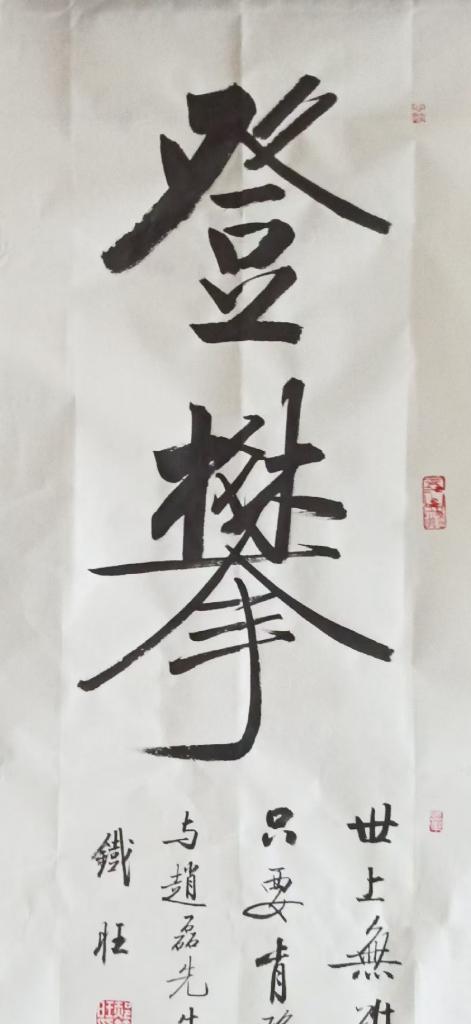 登攀
世上無
只要肯
与趙磊先
鐵旺